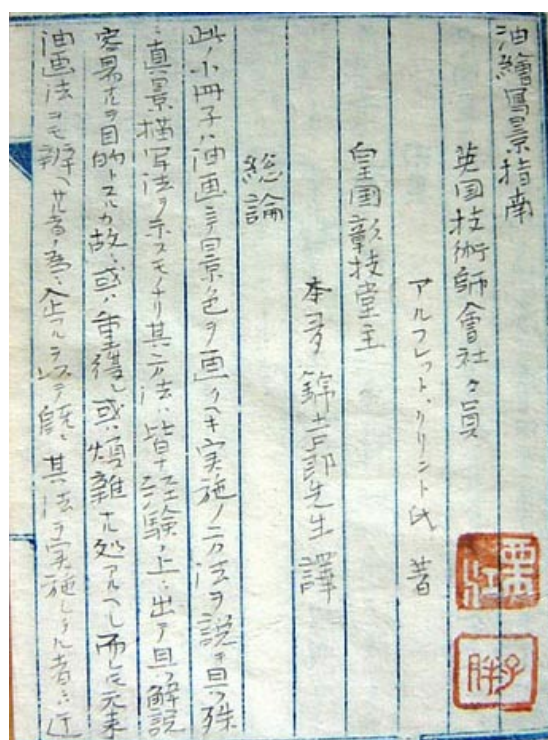 油繪寫景指南
英国技術師會社々員
アルフレット、クリント氏 著
皇国彰技堂主
本多錦吉郎先生 譯
総論
此ノ小冊子ハ油画ニテ景色ヲ画クヘキ実施ノ方法ヲ説キ且ツ殊
ニ真景描写法ヲ示スモノナリ其方法ハ皆ナ経験ノ上ニ出テ且ツ解説
容易ナルヲ目的トスルカ故ニ或ハ重複シ或ハ煩雑ナル処アルヘシ而シテ元来
油画法ヲモ辨ヘサル者ノ為ニ 其法ヲ実施シタル者ニ近